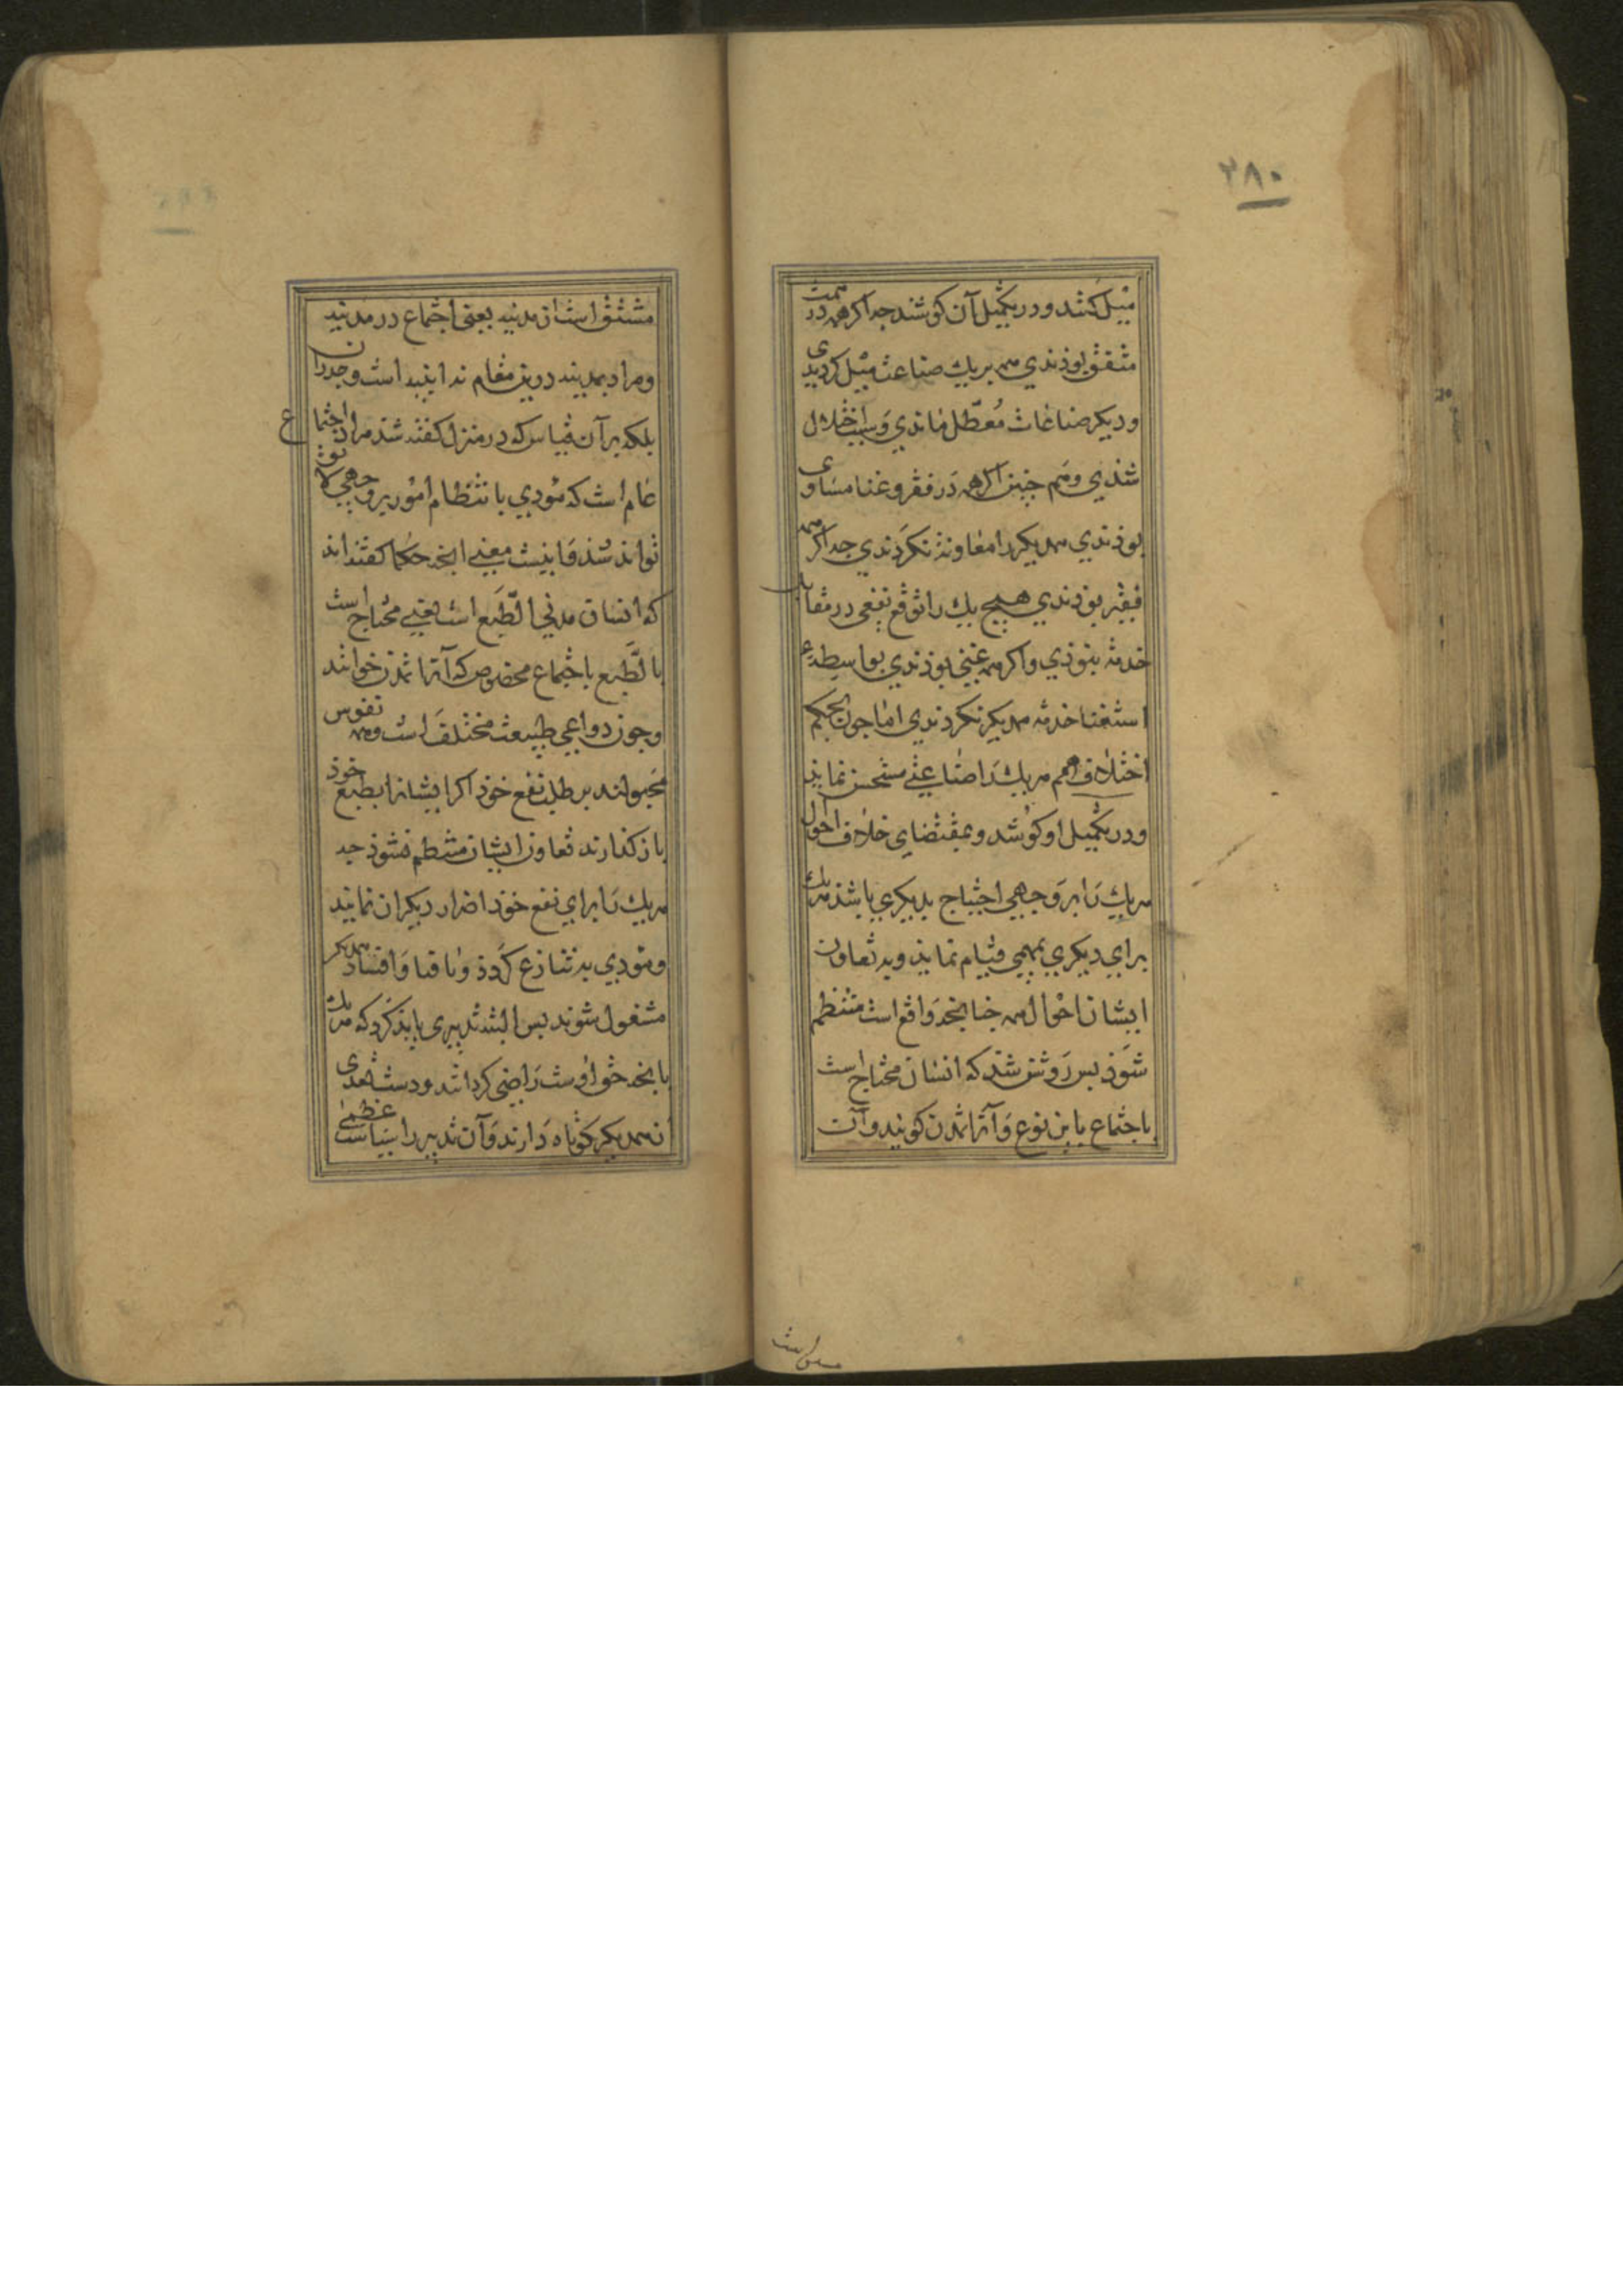 ۲۸۰
میل کنند و در تکمیل آن کوشند جه اکر همه در همت
متفق بوذندي همه بریك صناعت میل کردندی
و دیکر صناعات معطل ماندي و سبب اختلال
شذي و هم جنین اکر همه در فقر و غنا مساوی
بوذندي همدیکر را معاونة نکردندي جه اکر همه
فقیر بوذندي هیچ یك را توقع نفعی در مقابله
خدمة نبوذي و اکر همه غنی بوذندي بواسطه
استغنا خدمة همدیکر نکردندي اما جون بحکم
اختلاف همم هر یك را صناعتی مستحسن نماید
و در تکمیل او کوشد و بمقتضاي خلاف احوال
هر یك را بر وجهي احتیاج بدیکري باشذ هر یك
براي دیکري بمهمي قیام نماید و به تعاون
ایشان احوال همه جنانجه واقع است منتظم
شوذ بس روشن شد که انسان محتاج است
باجتماع باین نوع و آنرا تمدن کویند و آن
مشتق است از مدینه یعنی اجتماع در مدینه
و مراد بمدینه درین مقام نه ابنیه است و جدران
بلکه برآن قیاس که در منزل کفته شد مراد اجتماع
عام است که مؤدي بانتظام امور بر وجهي لایق
تواند شد و اینست معنی آنجه حکما کفته اند
که انسان مدني الطبع است یعنی محتاج است
بالطبع باجتماع مخصوص که آنرا تمدن خوانند
و جون دواعي طبیعت مختلف است و همه نفوس
مجبولند بر طلب نفع خوذ اکر ایشانرا بطبع خوذ
باز کذارند تعاون ایشان منتظم نشوذ جه
هر یك را براي نفع خوذ اضرار دیکران نمایند
و مؤدي به تنازع کردد و بافنا و افساد همدیکر
مشغول شوند بس البته تدبیري باید کرد که هر یك
بانجه حق اوست راضي کردانند و دست تعدی
از همدیکر کوتاه دارند و آن تدبیر را سیاست عظمی
مشتق است